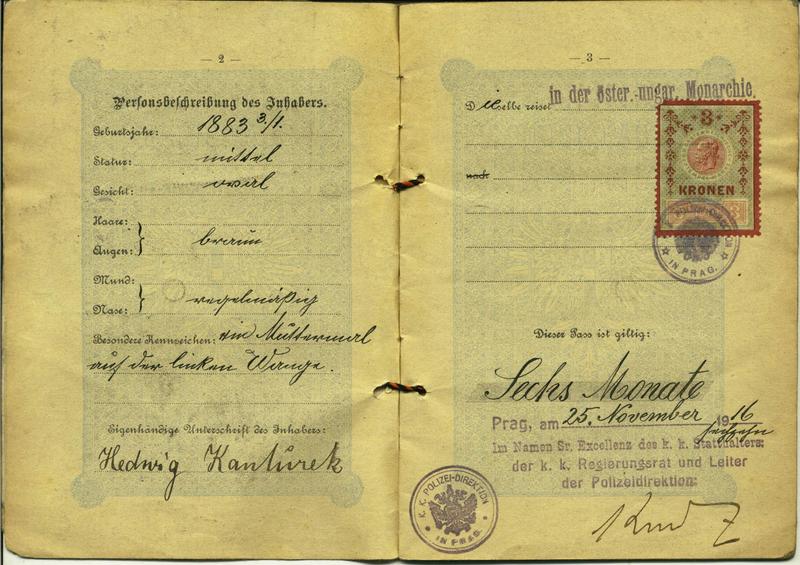 — 2 —
Personsbeschreibung des Inhabers.
Geburtsjahr: 1883 3/1.
Statur: mittel
Gesicht: oval
Haare:
Augen: } braun
Mund:
Nase: } regelmäßig
Besondere Kennzeichen: ein Muttermal
auf der linken Wange.
Eigenhändige Unterschrift des Inhabers:
Hedwig Kantůrek
— 3 —
Dieselbe reiset in der öster.-ungar. Monarchie.
nach
3
KRONEN
IN PRAG.
Dieser Pass ist giltig:
Sechs Monate
Prag, am 25. November 1916
sechzehn
Im Namen Sr. Excellenz des k. k. Statthalters:
der k. k. Regierungsrat und Leiter
der Polizeidirektion:
K. K. POLIZEI-DIREKTION
IN PRAG.